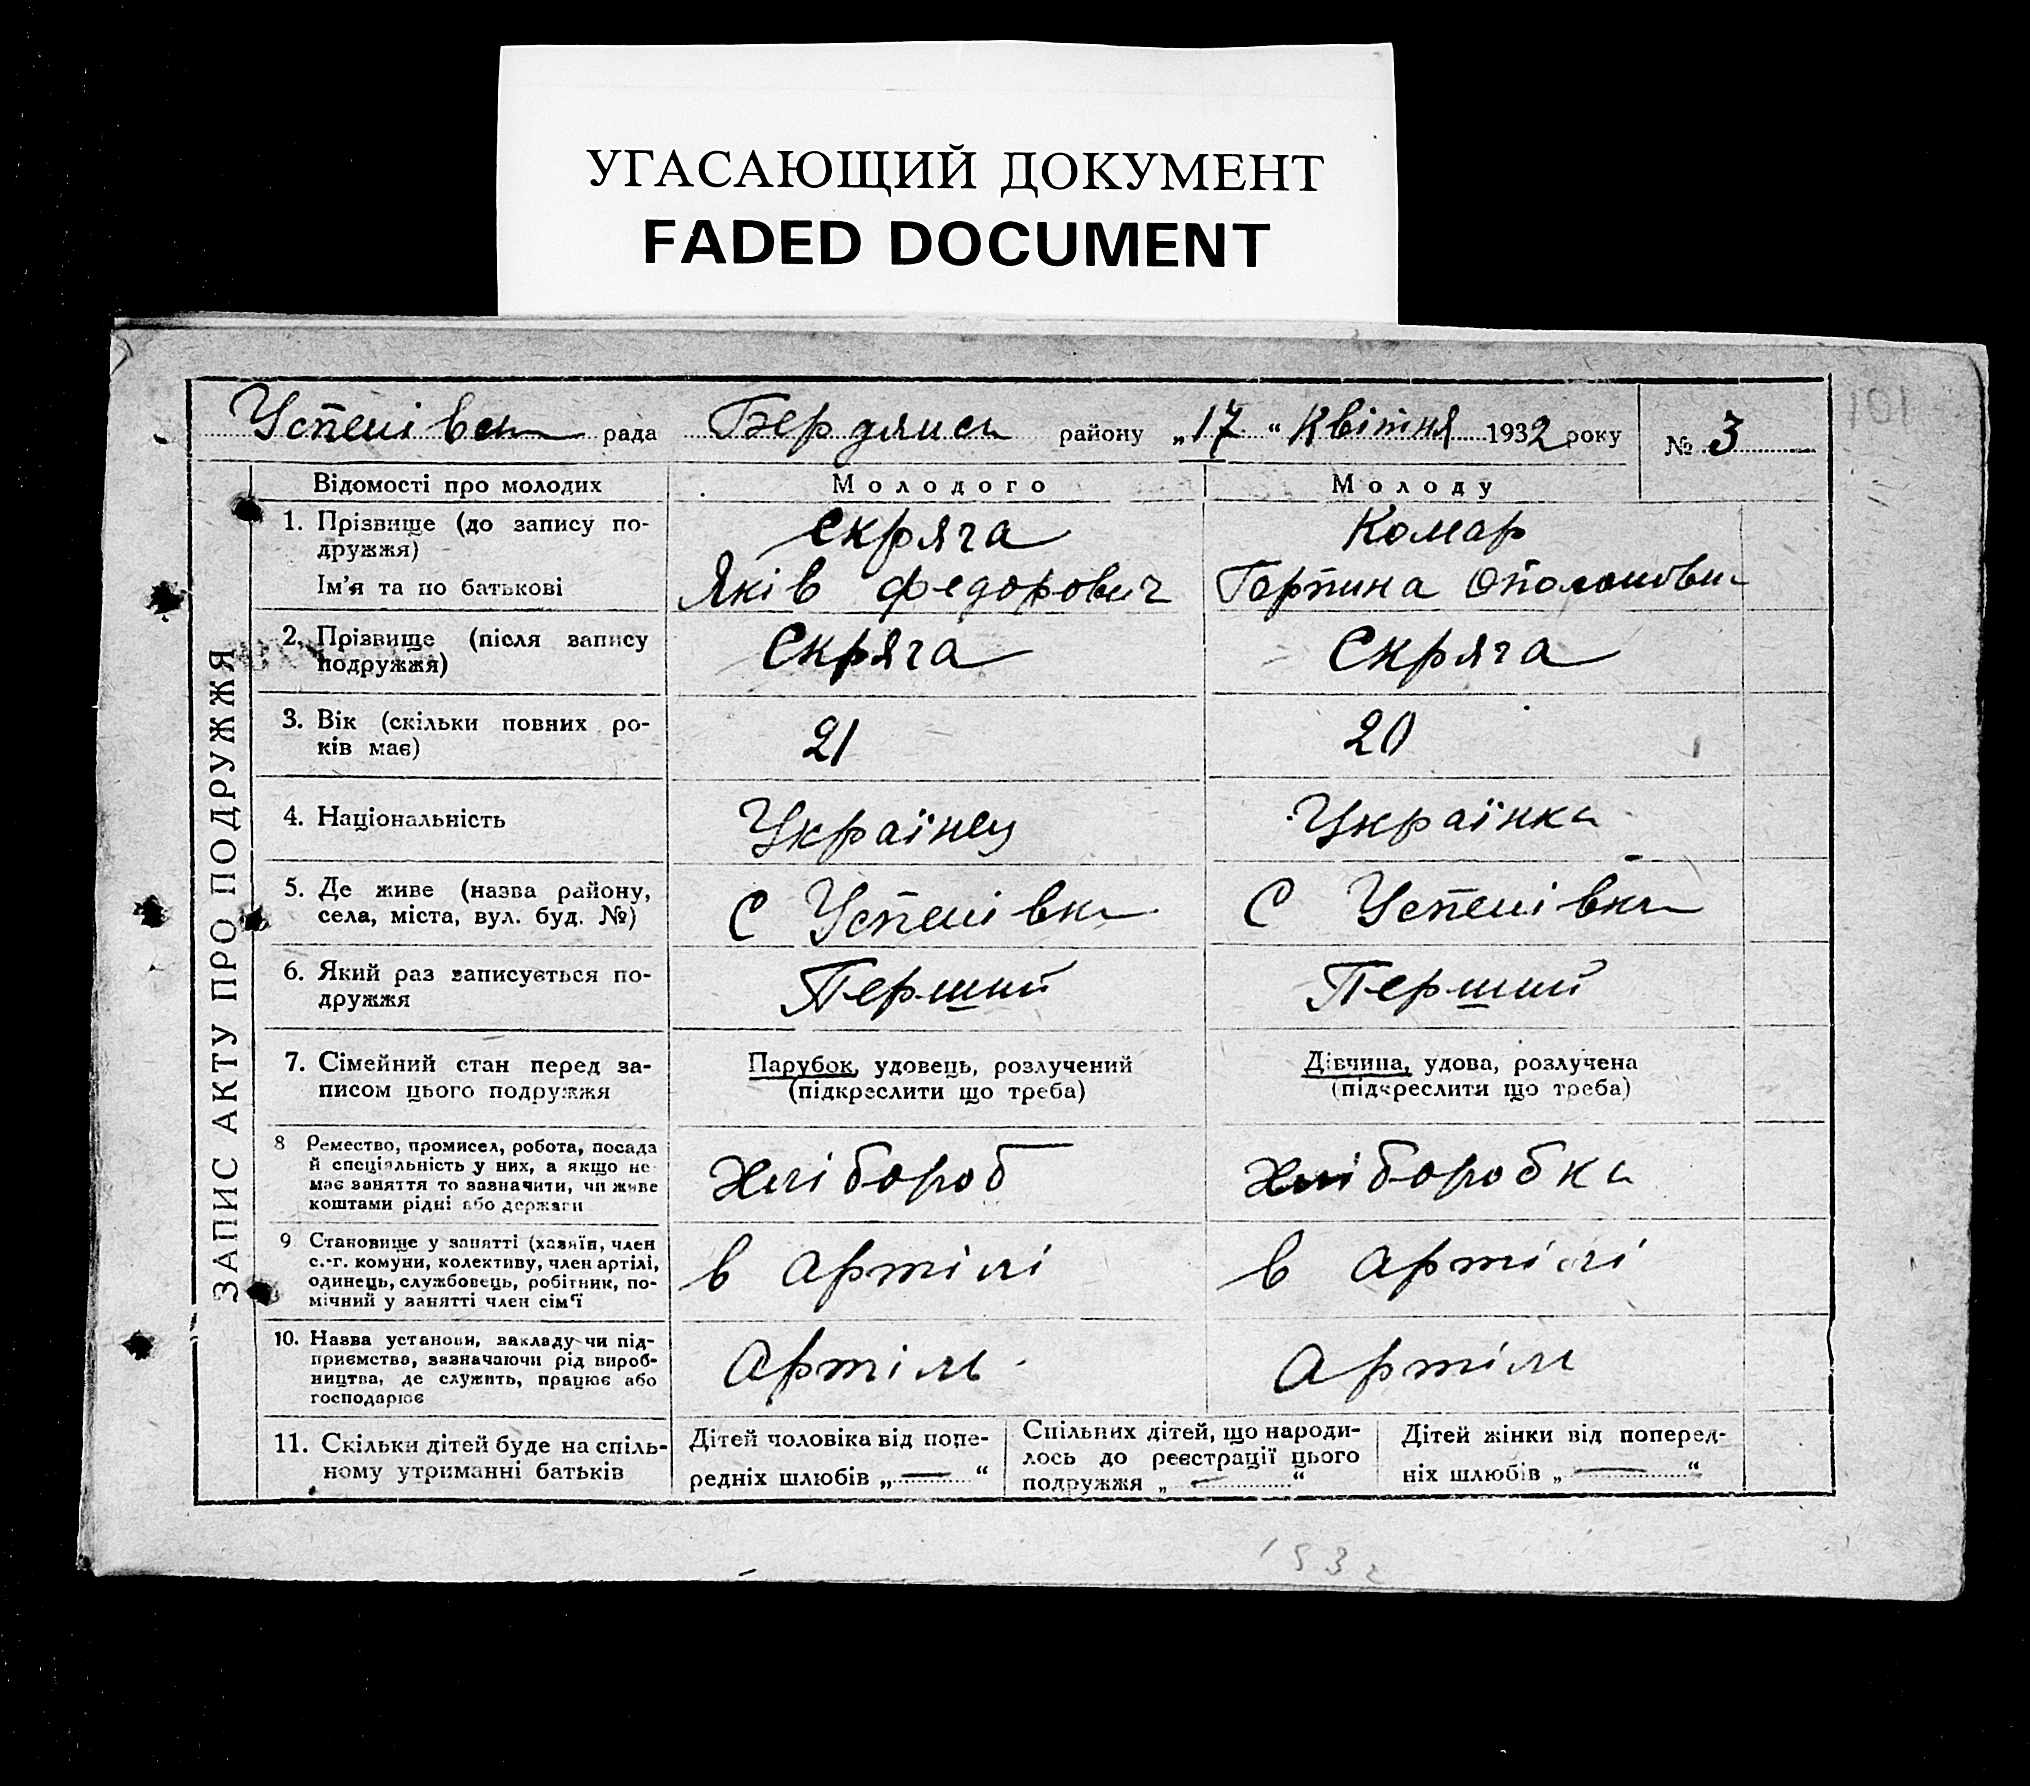 УГАСАЮЩИЙ ДОКУМЕНТ
FADED DOCUMENT
101
Успенівська рада Бердянськ району „17“ Квітня 1932 року № 3
ЗАПИС АКТУ ПРО ПОДРУЖЖЯ
Відомості про молодих Молодого Молоду
1. Прізвище (до запису по-
дружжя)
Скряга Комар
Ім'я та по батькові Яків Федорович Горпина
2. Прізвище (після запису
подружжя)
Скряга Скряга
3. Вік (скільки повних ро-
ків має)
21 20
4. Національність Українец Українка
5. Де живе (назва району,
села, міста, вул. буд. №)
С Успенівка С Успенівка
6. Який раз записується по-
дружжя
Перший Перший
7. Сімейний стан перед за-
писом цього подружжя
Парубок, удовець, розлучений
(підкреслити що треба)
Дівчина, удова, розлучена
(підкреслити що треба)
8 Ремество, промисел, робота, посада
й спеціяльність у них, а якщо не
має заняття то зазначити, чи живе
коштами рідні або держави
Хлібороб Хліборобка
9 Становище у занятті (хазяїн, член
с.-г. комуни, колективу, член артілі,
одинець, службовець, робітник, по-
мічний у занятті член сім'ї
в артілі в артілі
10. Назва установи, закладу чи під-
приємства, зазначаючи рід вироб-
ництва, де служить, працює або
господарює
Артіль Артіль
11. Скільки дітей буде на спіль-
ному утриманні батьків
Дітей чоловіка від попе-
редніх шлюбів „—“
Спільних дітей, що народи-
лось до реєстрації цього
подружжя „—“
Дітей жінки від поперед-
ніх шлюбів „—“
1932